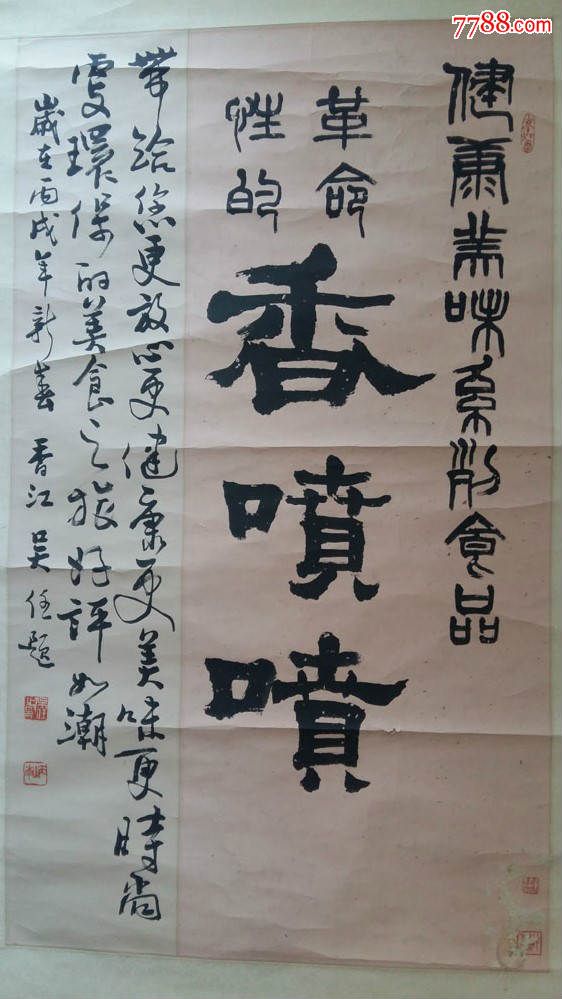 7788.com
中国收藏热线
健康美味系列食品
革命
性的
香噴噴
帶給您更放心更健康更美味更時尚
更環保的美食之旅好評如潮
歲在丙戌年新春 香江 吴任題